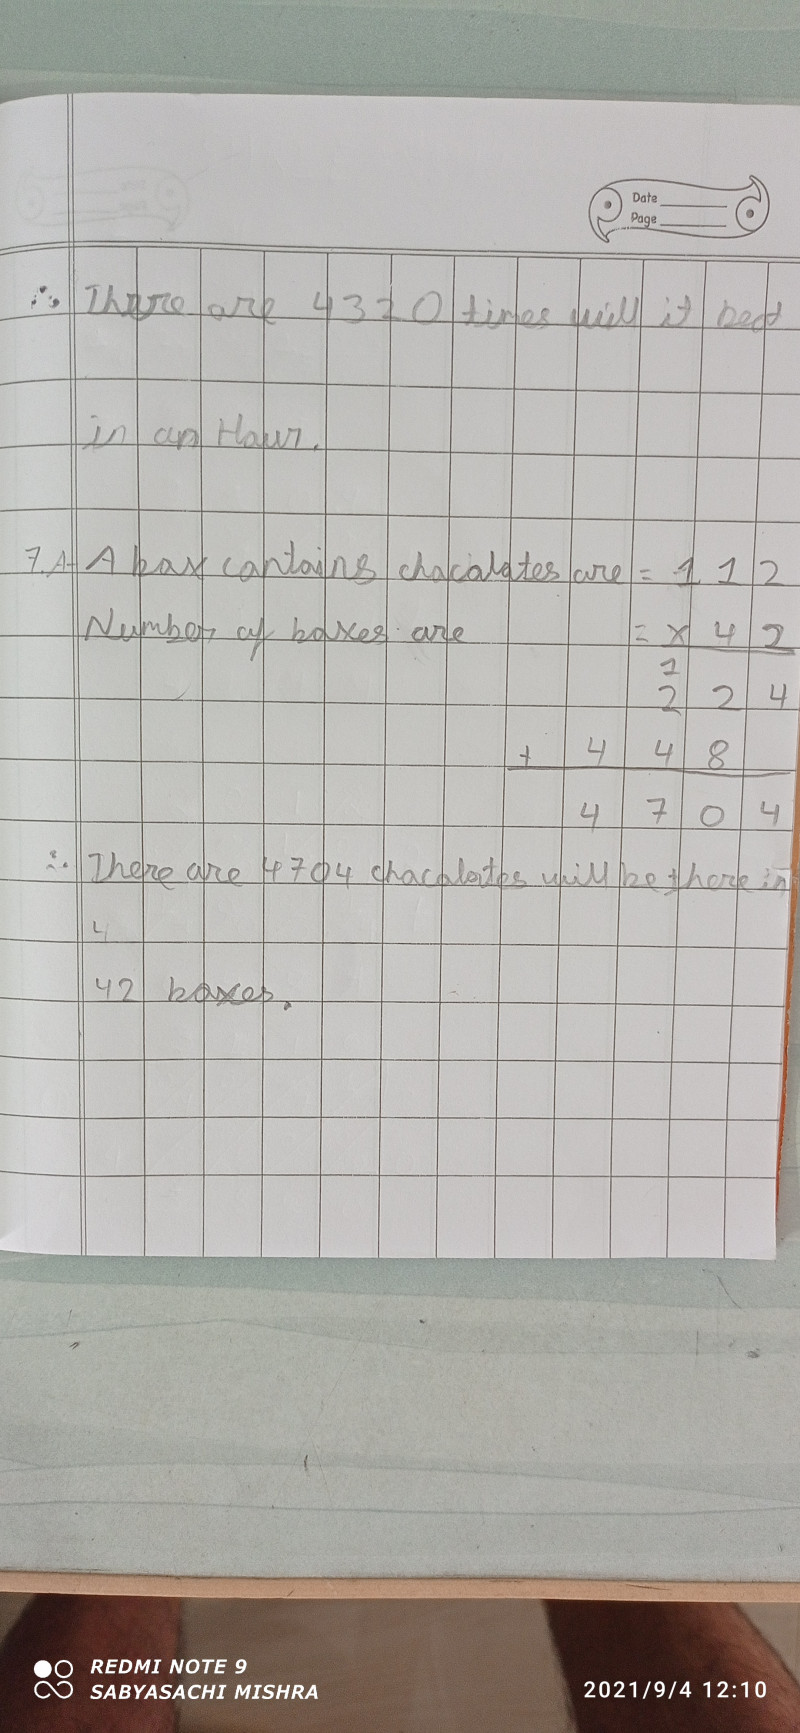 Date
Page
∴ There are 4320 times will it beat
in an Haur.
7. A- A bax cantains chacalates are = 1 1 2
Number of baxes are = x 4 2
1
2 2 4
+ 4 4 8
4 7 0 4
∴ There are 4704 chacalates will be there in
4
42 baxes.
REDMI NOTE 9
SABYASACHI MISHRA
2021/9/4 12:10